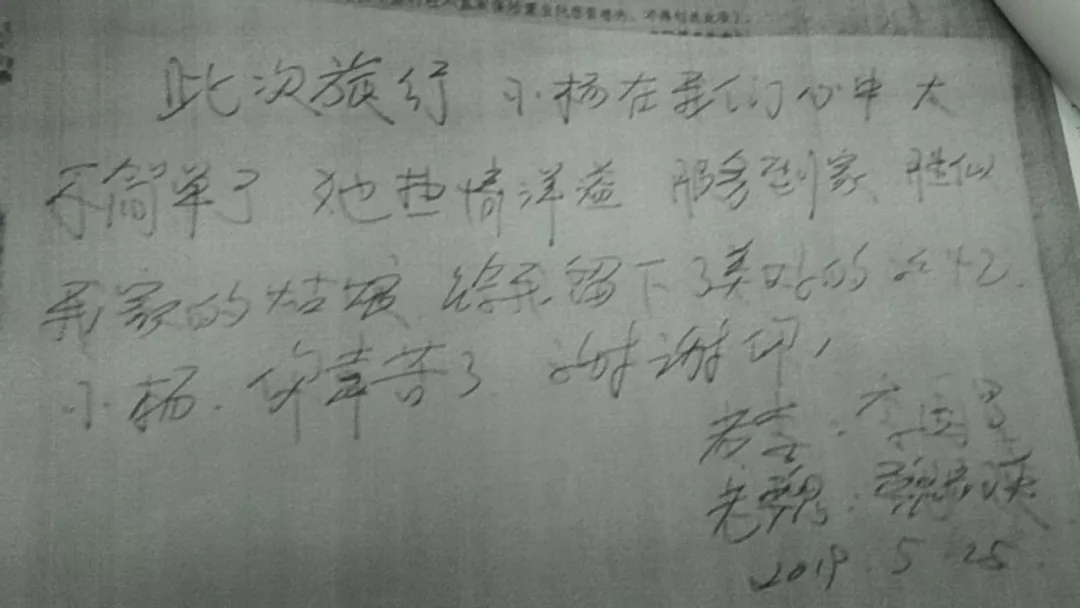 此次旅行 小杨在我们心中大
不简单了 她热情洋溢 服务到家 胜似
我家的姑娘 给我留下了美好的记忆.
小杨.你辛苦了 谢谢你,
老李:李国
老魏:魏
2019.5 25.